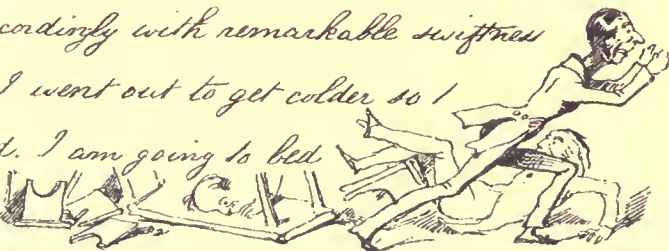 cordingly with remarkable swiftness
I went out to get colder so I
d. I am going to bed